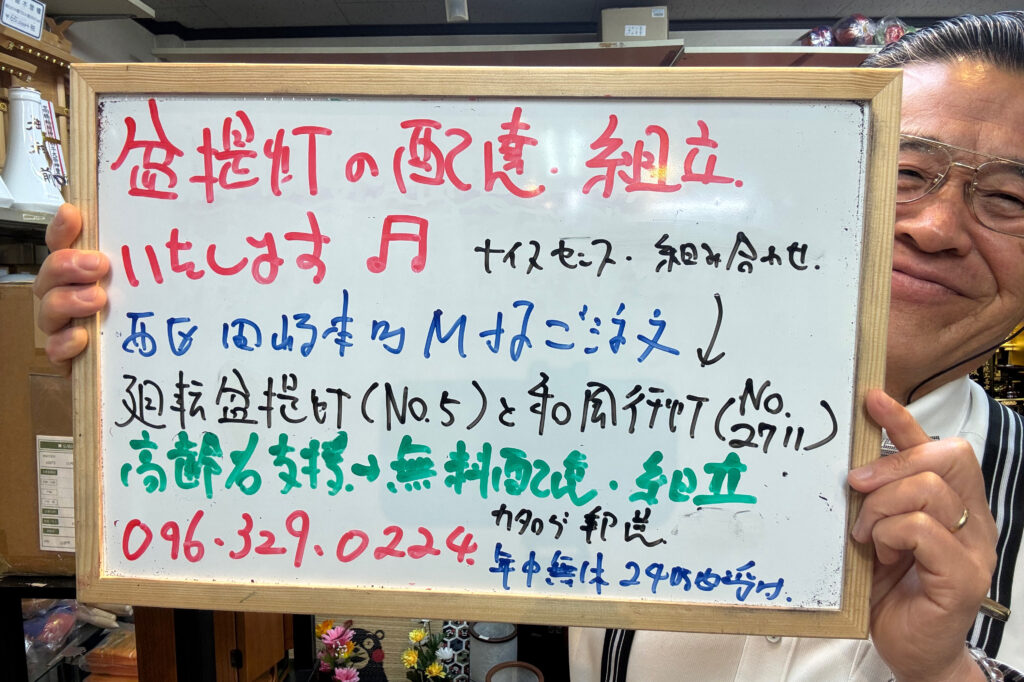 盆提灯の配達・組立
いたします♬
ナイスセンス・組み合わせ.
西区田崎本町M様ご注文
廻転盆提灯(No.5)と和風行灯(No.2711)
高齢者支援→無料配達・組立
096.329.0224.
カタログ郵送
年中無休 24時間受付.